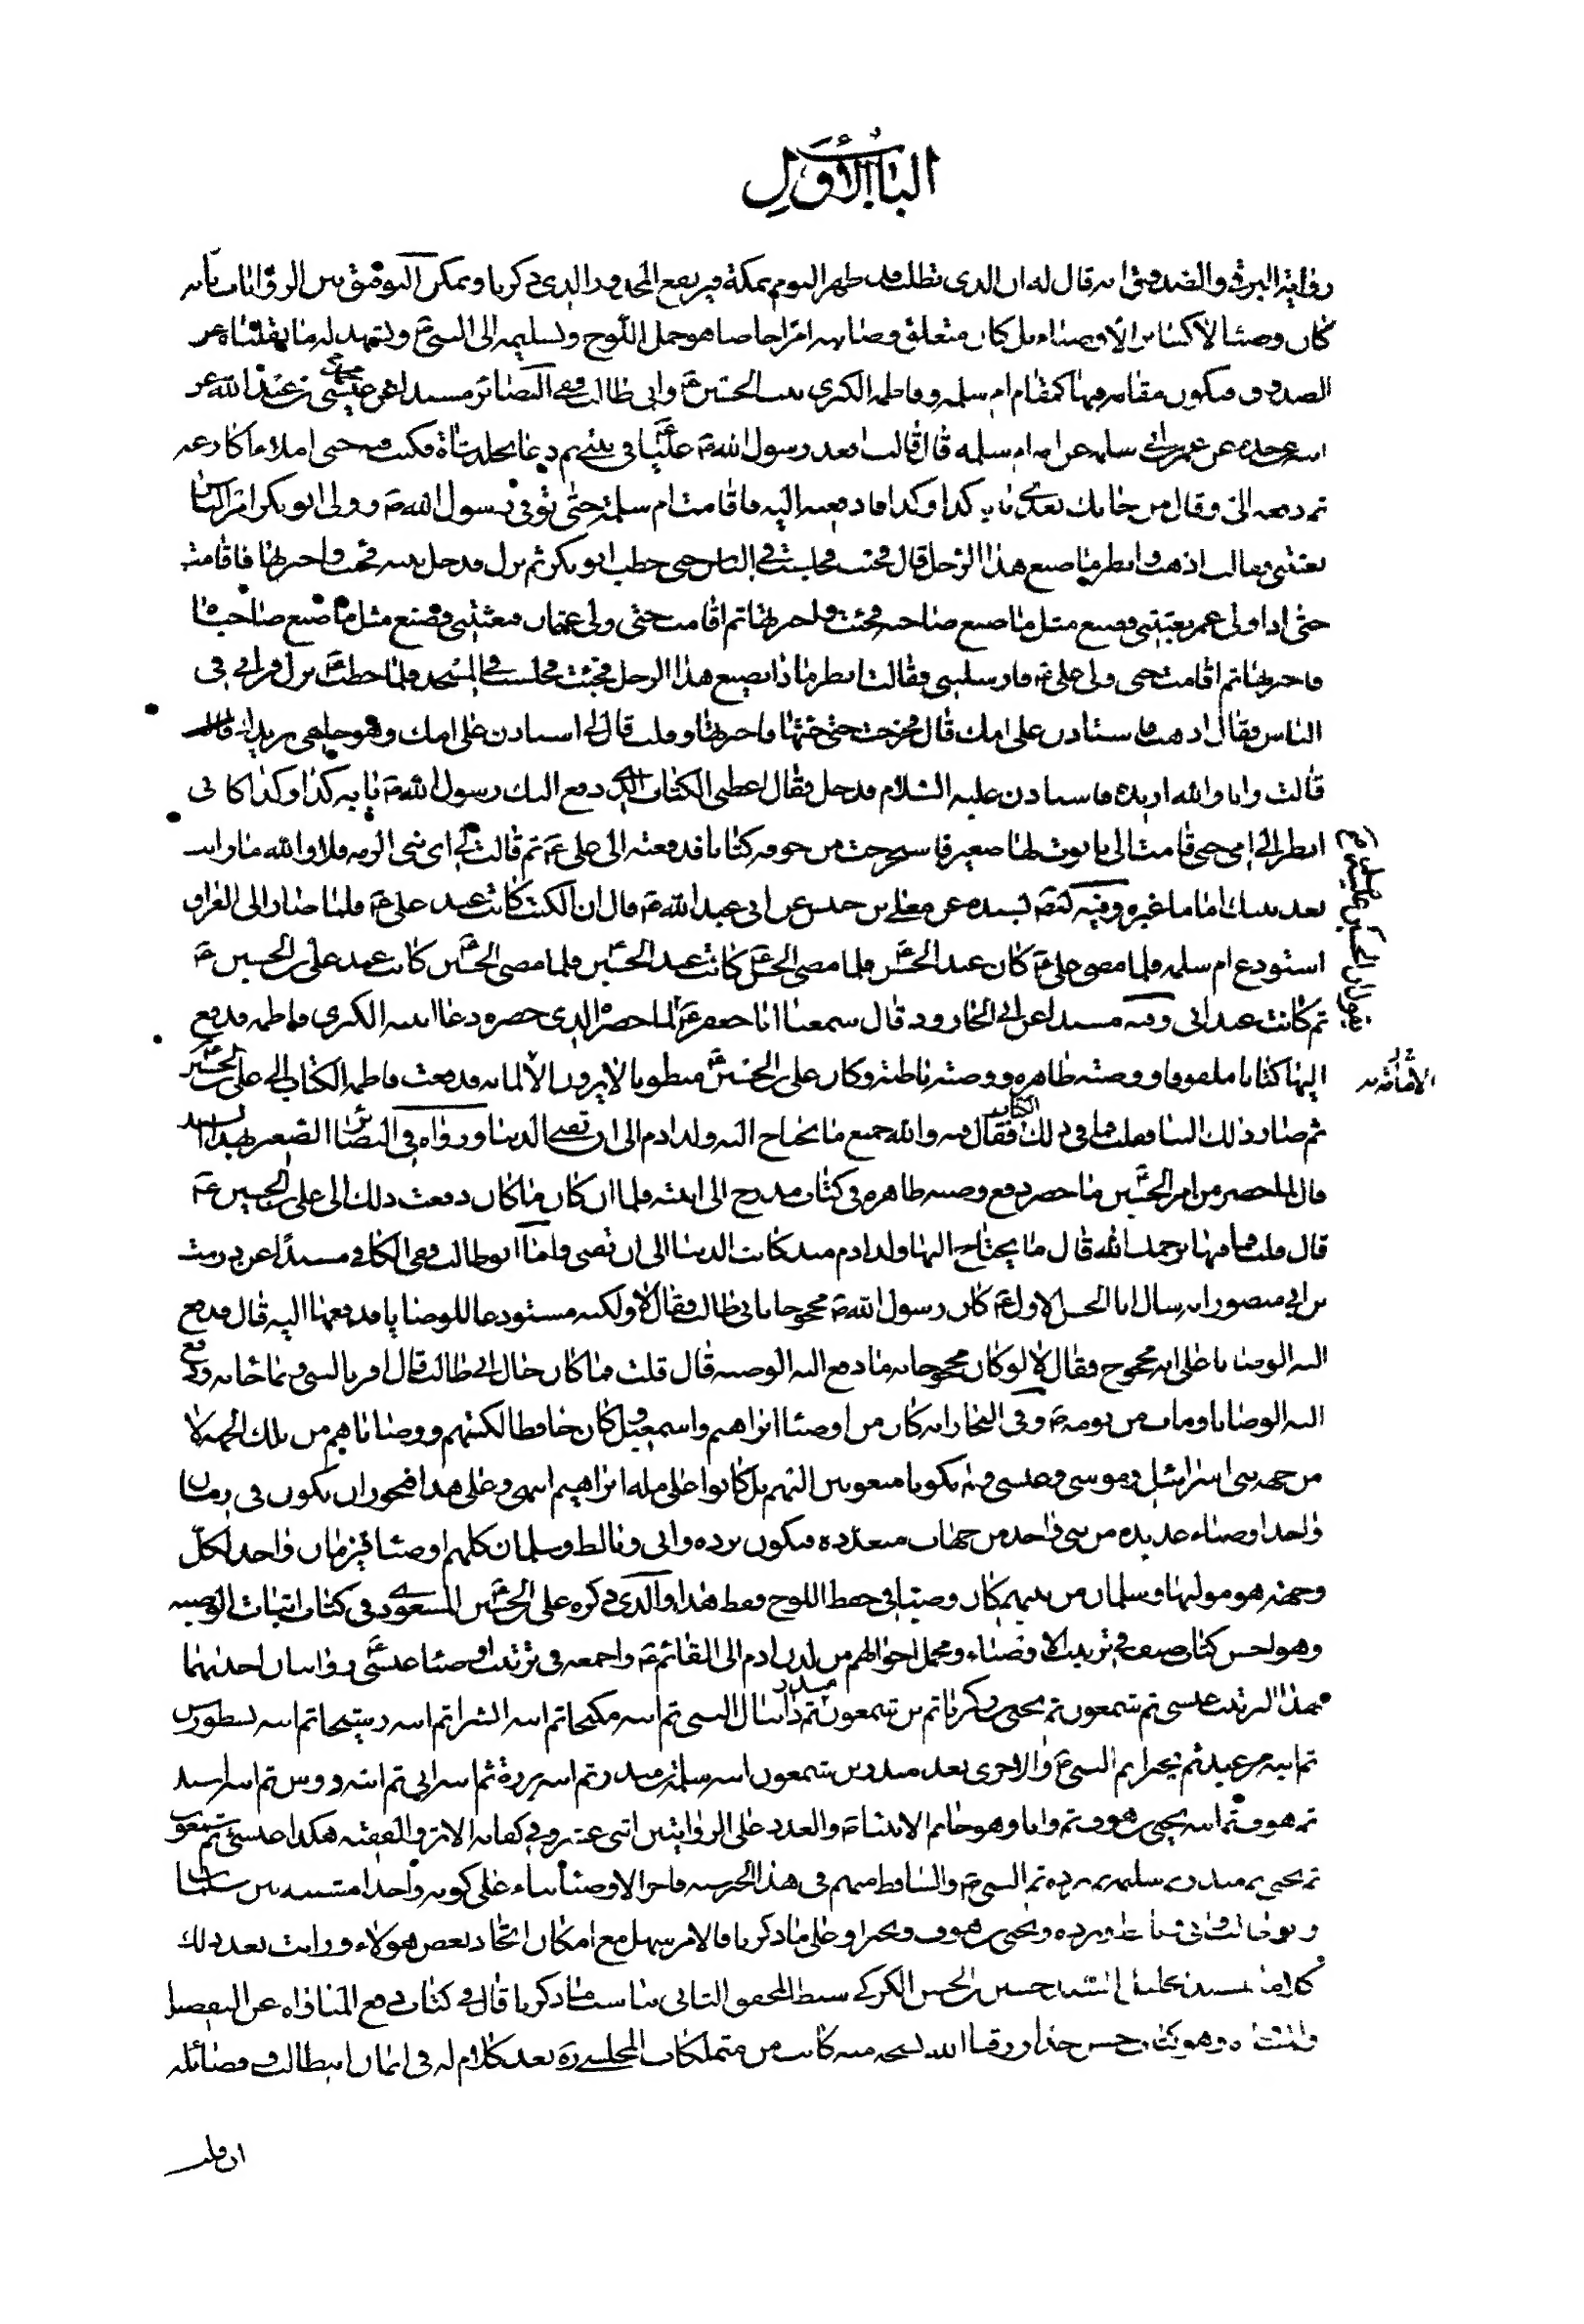 الباب الأول
رواية البرقي والصدوق انه قال له ان الذي تطلب قد ظهر اليوم بمكة فيرتفع المحذور الذي ذكرنا ويمكن التوفيق بين الروايات بانه
كان وصيا لا كسائر الأوصياء بل كان متعلق وصايته امرا خاصا هو حمل اللوح وتسليمه الى النبي ص ويشهد له ما نقلناه عن
الصدوق فيكون مقامه فيها كمقام ام سلمه وفاطمه الكبرى بنت الحسين ع وابي طالب ففي البصائر مسندا عن عيسى بن عبد الله عن
ابيه عن جده عن عمر بن ابي سلمه عن امه ام سلمه قال قالت اقعد رسول الله ص عليا ع في بيتي ثم دعا بجلد شاة فكتب فيه حتى املاء اكارعه
ثم دفعه الي وقال من جاءك بعدي بايه كذا وكذا فادفعيه اليه فاقامت ام سلمة حتى توفي رسول الله ص وولى ابو بكر امر الناس
بعثتني فقالت اذهب وانظر ما صنع هذا الرجل قال فجئت فجلست في الناس حتى خطب ابو بكر ثم نزل فدخل بيته فجئت فاخبرتها فاقامت
حتى اذا ولى عمر بعثتني فصنع مثل ما صنع صاحبه فجئت فاخبرتها ثم اقامت حتى ولى عثمان فبعثتني فصنع مثل ما صنع صاحباه
فاخبرتها ثم اقامت حتى ولى علي ع فارسلتني فقالت انظر ماذا يصنع هذا الرجل فجئت فجلست في المسجد فلما خطب ع نزل فرآني في
الناس فقال اذهب فاستاذن على امك قال فخرجت حتى جئتها فاخبرتها وقلت قال لي استاذن على امك وهو خلفي يريدك
قالت وانا والله اريده فاستاذن عليه السلام فدخل فقال اعطني الكتاب الذي دفع اليك رسول الله ص بايه كذا وكذا كاني
انظر الى امي حتى قامت الى تابوت لها صغير فاستخرجت من جوفه كتابا فدفعته الى علي ع ثم قالت لي امي يا بني الزمه فلا والله ما رايت
بعد نبيك اماما غيره وفيه ايضا بسنده عن معلى بن خنيس عن ابي عبد الله ع قال ان الكتب كانت عند علي ع فلما صار الى العراق
استودع ام سلمه فلما مضى علي ع كان عند الحسن فلما مضى الحسن ع كانت عند الحسين فلما مضى الحسين كانت عند علي بن الحسين ع
ثم كانت عند ابي وفيه مسندا عن ابي الجارود قال سمعنا ابا جعفر ع لما حضر الذي حضره دعا ابنته الكبرى فاطمه فدفع
اليها كتابا ملفوفا ووصية ظاهره ووصيه باطنه وكان علي بن الحسين ع مبطونا لا يرون الا لما به فدفعت فاطمه الكتاب الى علي بن الحسين
ثم صار ذلك الينا فقلت فما في ذلك الكتاب فقال فيه والله جميع ما يحتاج اليه ولد ادم الى ان تفنى الدنيا ورواه في البصائر الصغير بهذا السند
قال لما حضر من امر الحسين ما حضر دفع وصيه ظاهره في كتاب مدرج الى ابنته فلما ان كان ما كان دفعت ذلك الى علي بن الحسين ع
قال قلت فما فيها يرحمك الله قال ما يحتاج اليها ولد ادم منذ كانت الدنيا الى ان تفنى واما ابو طالب ففي الكافي مسندا عن درست
بن ابي منصور انه سال ابا الحسن الاول ع كان رسول الله ص محجوجا بابي طالب فقال لا ولكنه مستودعا للوصايا فدفعها اليه قال فدفع
اليه الوصايا على انه محجوج فقال لا لو كان محجوجا به ما دفع اليه الوصيه قال قلت فما كان حال ابي طالب قال اقر بالنبي وبما جاء به ودفع
اليه الوصايا ومات من يومه ص وفي البحار انه كان من اوصيا ابراهيم واسمعيل وكان حافظا لكتبهم ووصاياهم من تلك الجهه لا
من جهه بني اسرائيل وموسى وعيسى ولم يكونوا مبعوثين اليهم بل كانوا على مله ابراهيم انتهى وعلى هذا فيجوز ان يكون في زمان
واحد اوصياء عديده من نبي واحد من جهات متعدده فيكون برده وابي وبالط وسلمان كلهم اوصياء في زمان واحد لكل
وجهة هو موليها وسلمان من بينهم كان وصيا في حفظ اللوح فقط هذا والذي ذكره علي بن الحسين المسعودي في كتاب اثبات الوصيه
وهو احسن كتاب صنف في ترتيب الاوصياء ومجمل احوالهم من لدن ادم الى القائم ع واجمعه في ترتيب اوصيا عيسى روايتان احديهما
بهذا الترتيب عيسى ثم شمعون ثم يحيى بن زكريا ثم منذر بن شمعون ثم دانيال النبي ثم ابنه مكيخا ثم ابنه انشوا ثم ابنه رستيخا ثم ابنه نسطورس
ثم ابنه مرعيد ثم بحيرا ثم النبي ص والاخرى بعد منذر بن شمعون ابنه سلمة بن منذر ثم ابنه برزة ثم ابنه ابي ثم ابنه دوس ثم ابنه اسيد
ثم هوف ثم ابنه يحيى بن هوف ثم وانا وهو خاتم الانبياء ص والعدد على الروايتين اثنى عشر وفي كفايه الاثر والغيبه هكذا عيسى ثم شمعون
ثم يحيى ثم منذر ثم سلمه ثم برده ثم النبي ص والساقط منهم في هذا الخبر سته فاخر الاوصياء بناء على كونه واحدا مشتبه بين سلمان
وابي وبالط وبرده ويحيى بن هوف وبحيرا وعلى ما ذكرنا فالامر سهل مع امكان اتحاد بعض هؤلاء ورايت بعد ذلك
كلاما للسيد الجليل السيد حسين بن الحسن الكركي سبط المحقق الثاني يناسب ما ذكرنا قال في كتاب دفع المناواه عن التفضيل
والمساواه وهو كتاب حسن جدا رزقنا الله نسخه منه كانت من متملكات المجلسي ره بعد كلام له في ايمان ابيطالب وفضائله
ان قلت